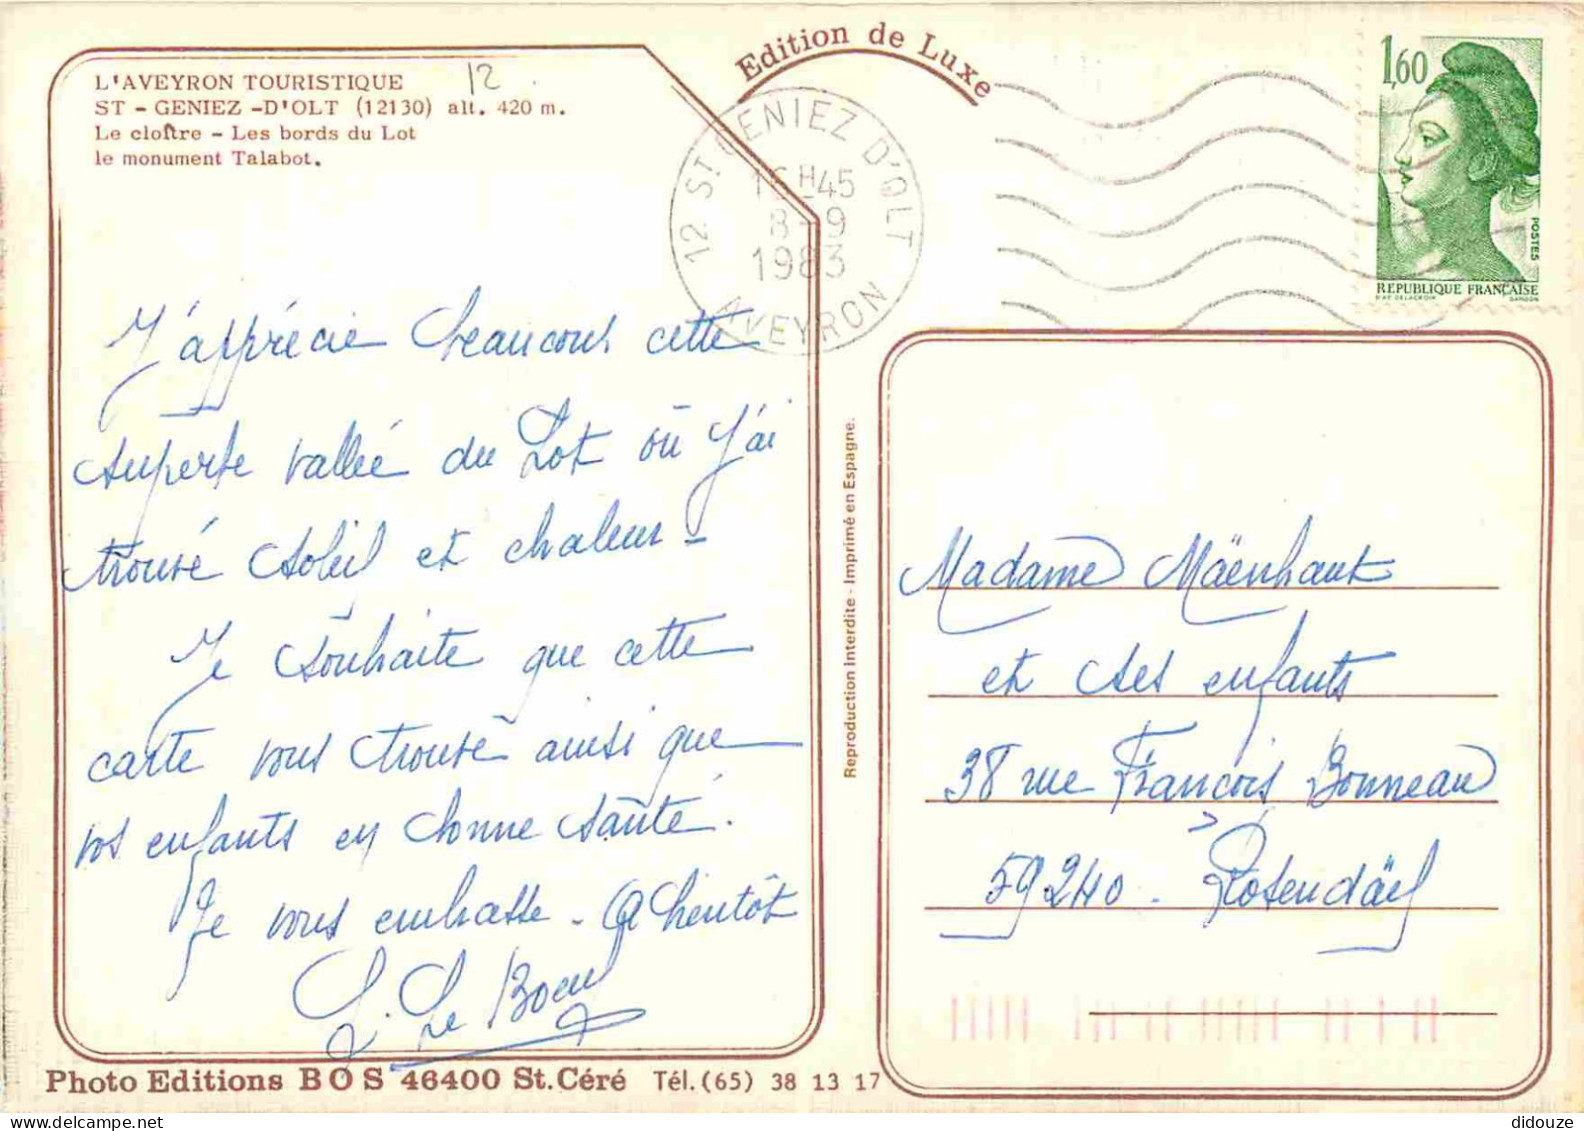 L'AVEYRON TOURISTIQUE
12
ST - GENIEZ -D'OLT (12130) alt. 420 m.
Le cloître - Les bords du Lot
le monument Talabot.
Edition de Luxe
12 ST GENIEZ D'OLT
16H45
8-9
1983
AVEYRON
1,60
POSTES
REPUBLIQUE FRANÇAISE
D'AP. DELACROIX GANDON
J'apprécie beaucoup cette
superbe vallée du Lot où j'ai
trouvé soleil et chaleur -
Je souhaite que cette
carte vous trouve ainsi que
vos enfants en bonne santé.
Je vous embrasse - A bientôt
Le Boeuf
Reproduction Interdite - Imprimé en Espagne.
Madame Mäenhaut
et ses enfants
38 rue François Bonneau
59240 - Rosendäel
Photo Editions BOS 46400 St.Céré Tél.(65) 38 13 17
didouze